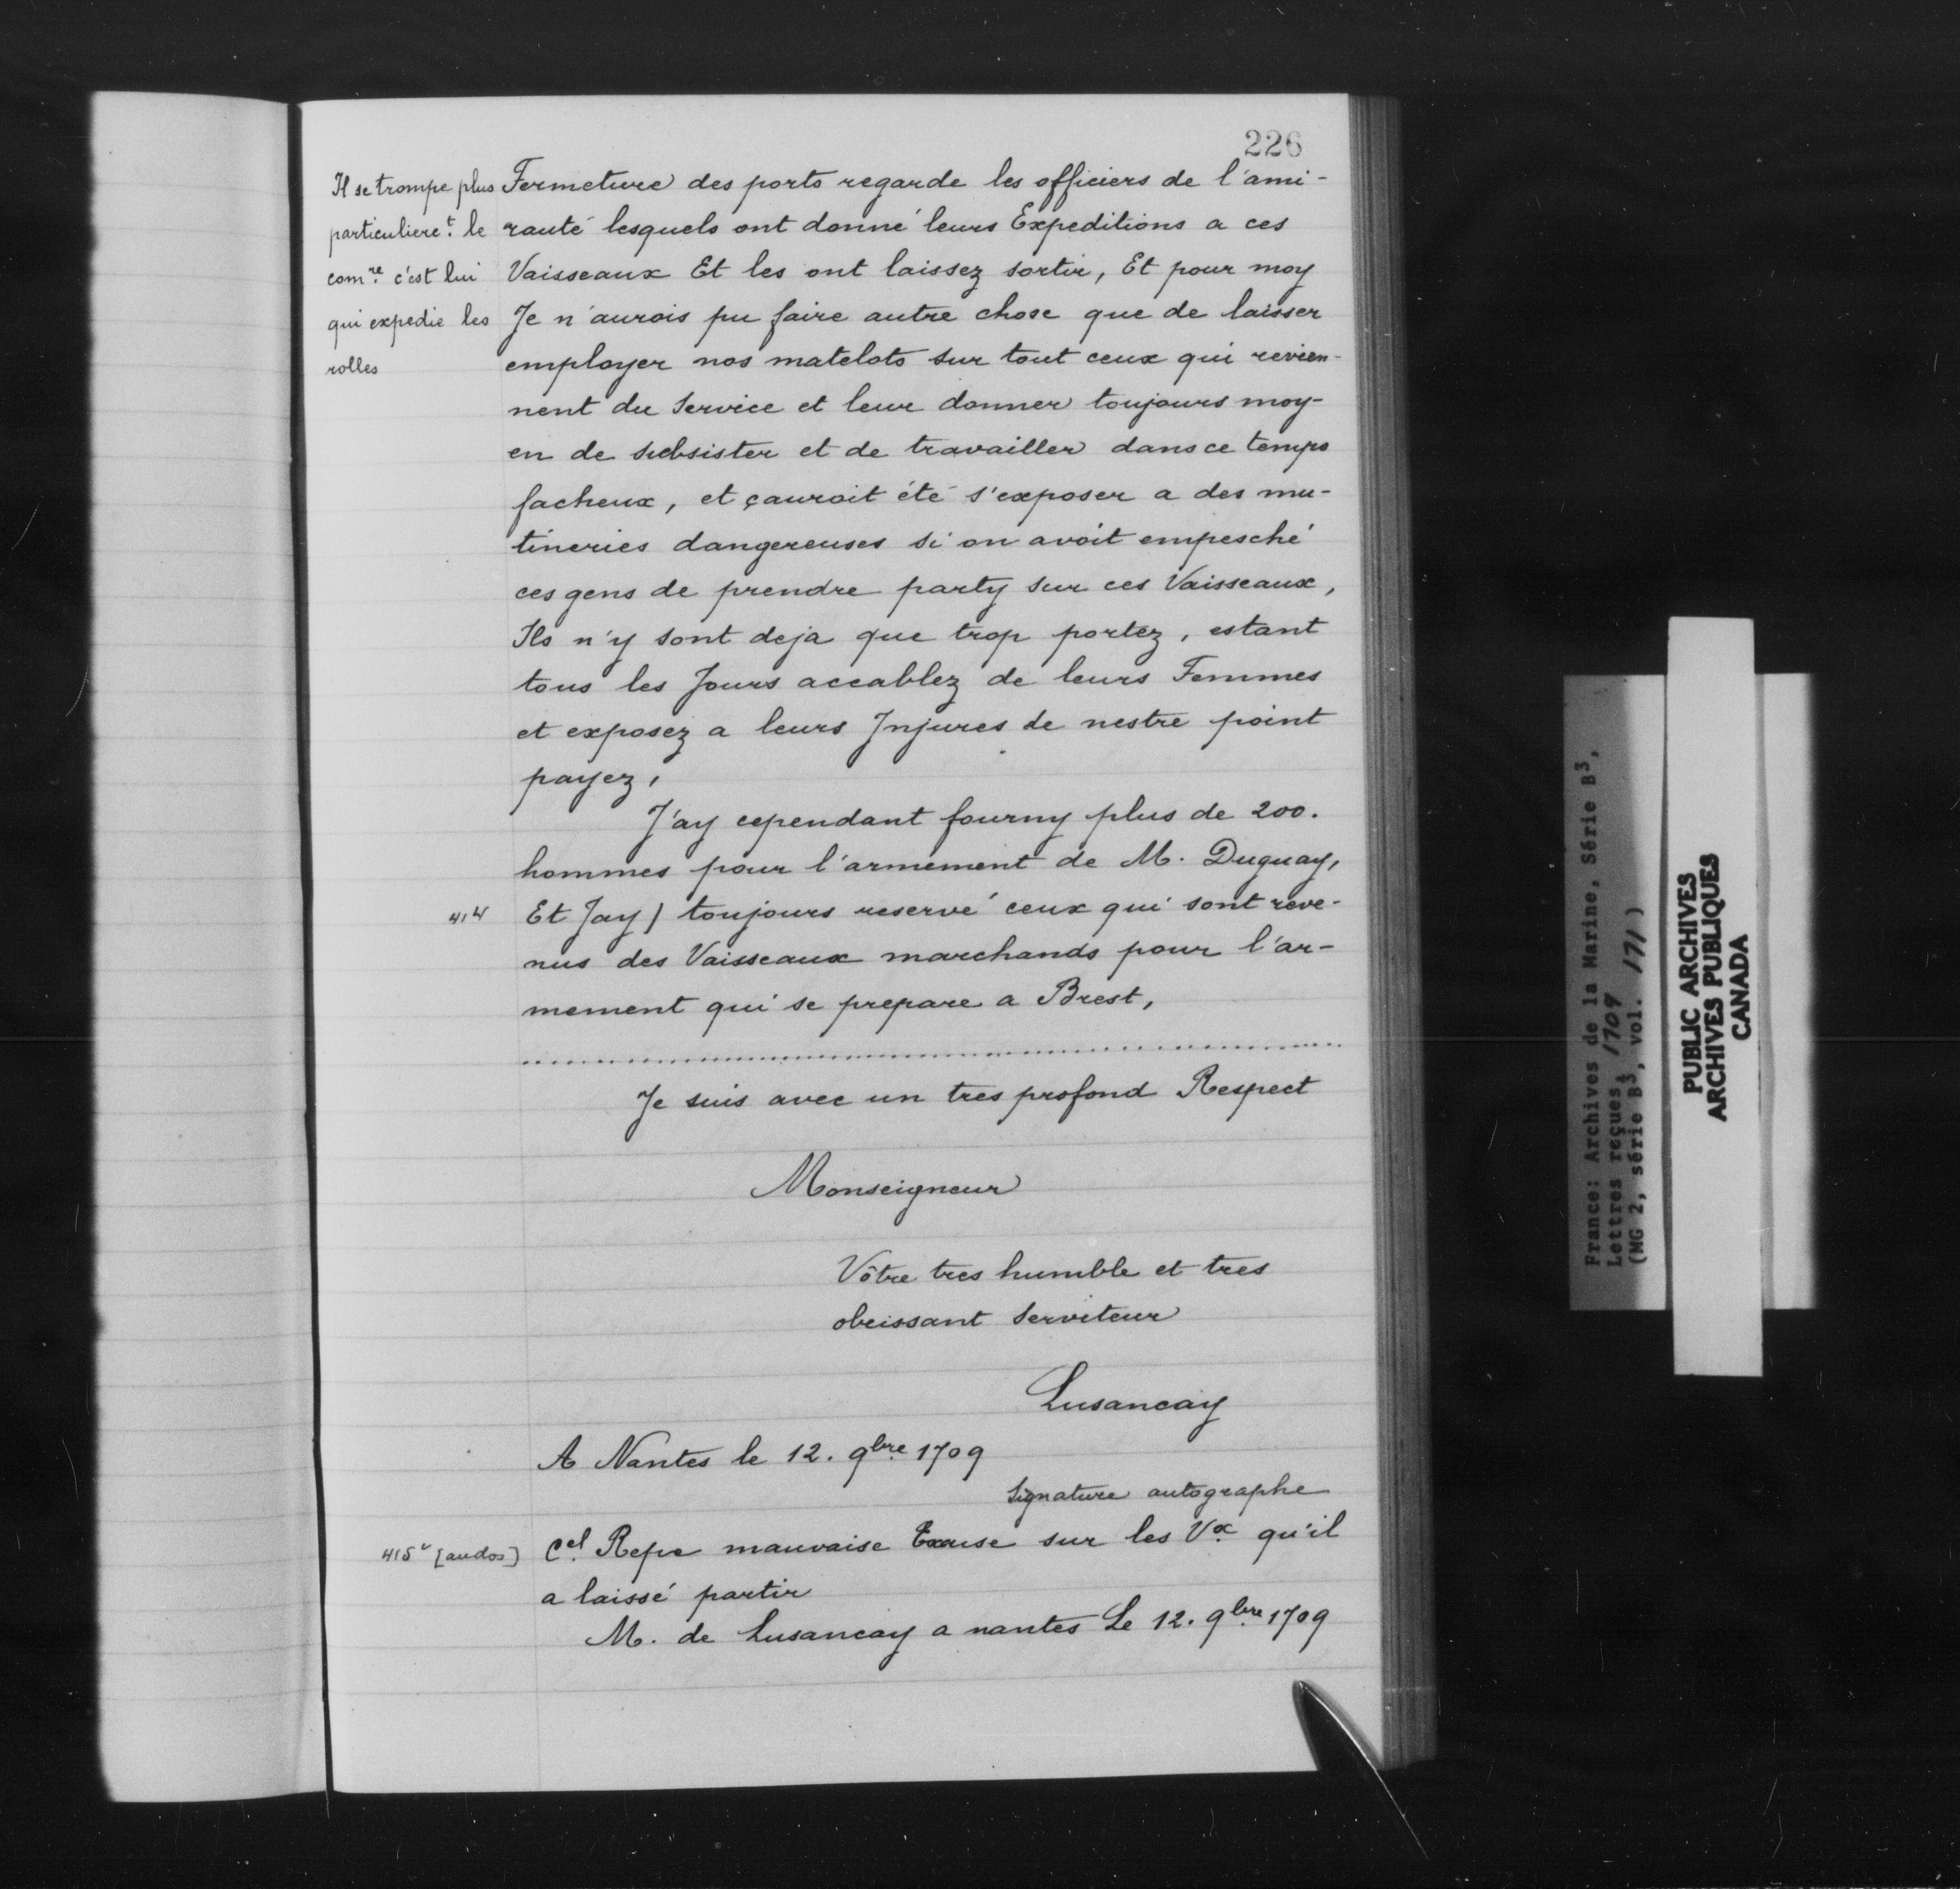 226
Il se trompe plus
particulieret. le
comre. c'est lui
qui expedie les
rolles
Fermeture des ports regarde les officiers de l'ami-
rauté lesquels ont donné leurs Expeditions a ces
Vaisseaux Et les ont laissez sortir, Et pour moy
Je n'aurois pu faire autre chose que de laisser
employer nos matelots sur tout ceux qui revien-
nent du Service et leur donner toujours moy-
en de subsister et de travailler dans ce temps
facheux, et çauroit été s'exposer a des mu-
tineries dangereuses si on avoit empesché
ces gens de prendre party sur ces Vaisseaux,
Ils n'y sont deja que trop portez, estant
tous les Jours accablez de leurs Femmes
et exposez a leurs Injures de nestre point
payez,
J'ay cependant fourny plus de 200.
hommes pour l'armement de M. Duguay,
414 Et Jay / toujours reservé ceux qui sont reve-
nus des Vaisseaux marchands pour l'ar-
mement qui se prepare a Brest,
Je suis avec un tres profond Respect
Monseigneur
Vôtre tres humble et tres
obeissant Serviteur
Lusancay
A Nantes le 12. 9bre. 1709
Signature autographe
415v [au dos] Cel. Repe mauvaise Excuse sur les Vx. qu'il
a laissé partir
M. de Lusancay a nantes Le 12. 9bre. 1709
France: Archives de la Marine, Série B3,
Lettres reçues, 1709
(MG 2, série B3, vol. 171)
PUBLIC ARCHIVES
ARCHIVES PUBLIQUES
CANADA